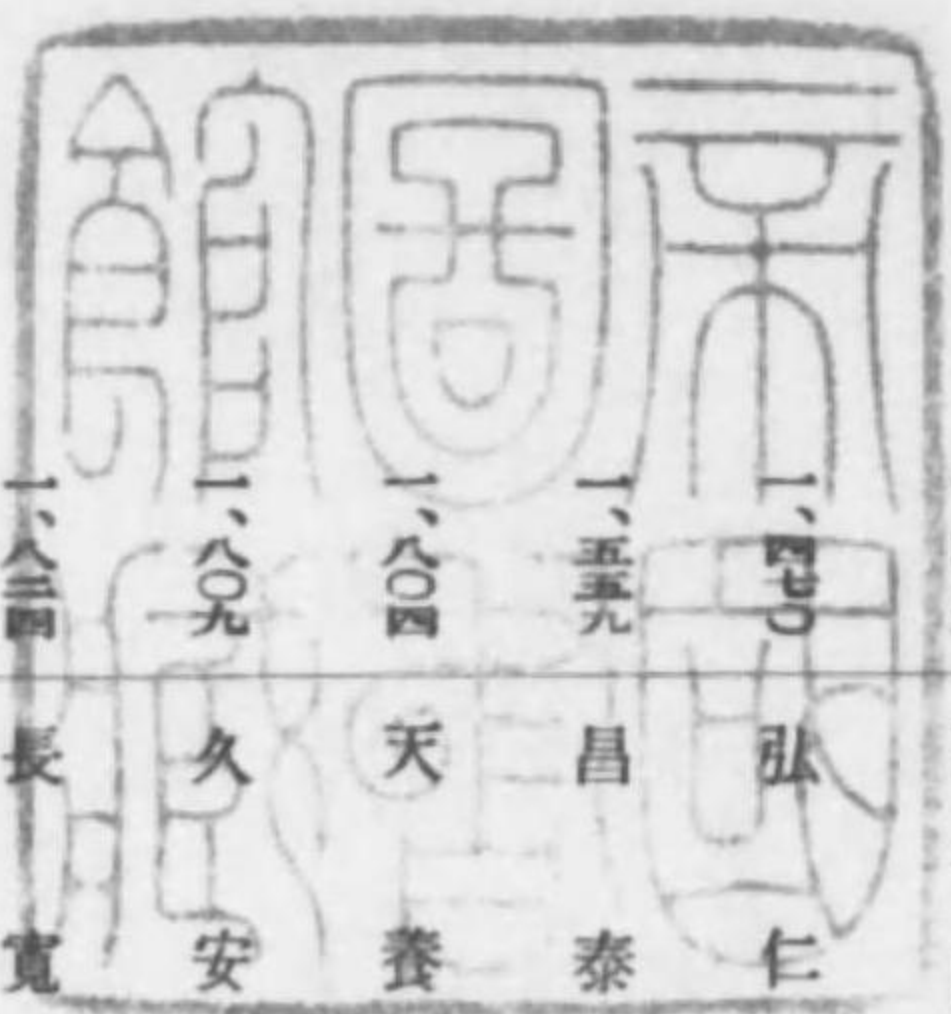 一、四七〇 弘仁
一、五五九 昌泰
一、八〇四 天養
一、八〇九 久安
一、八二四 長寬
帝國
圖書
館藏